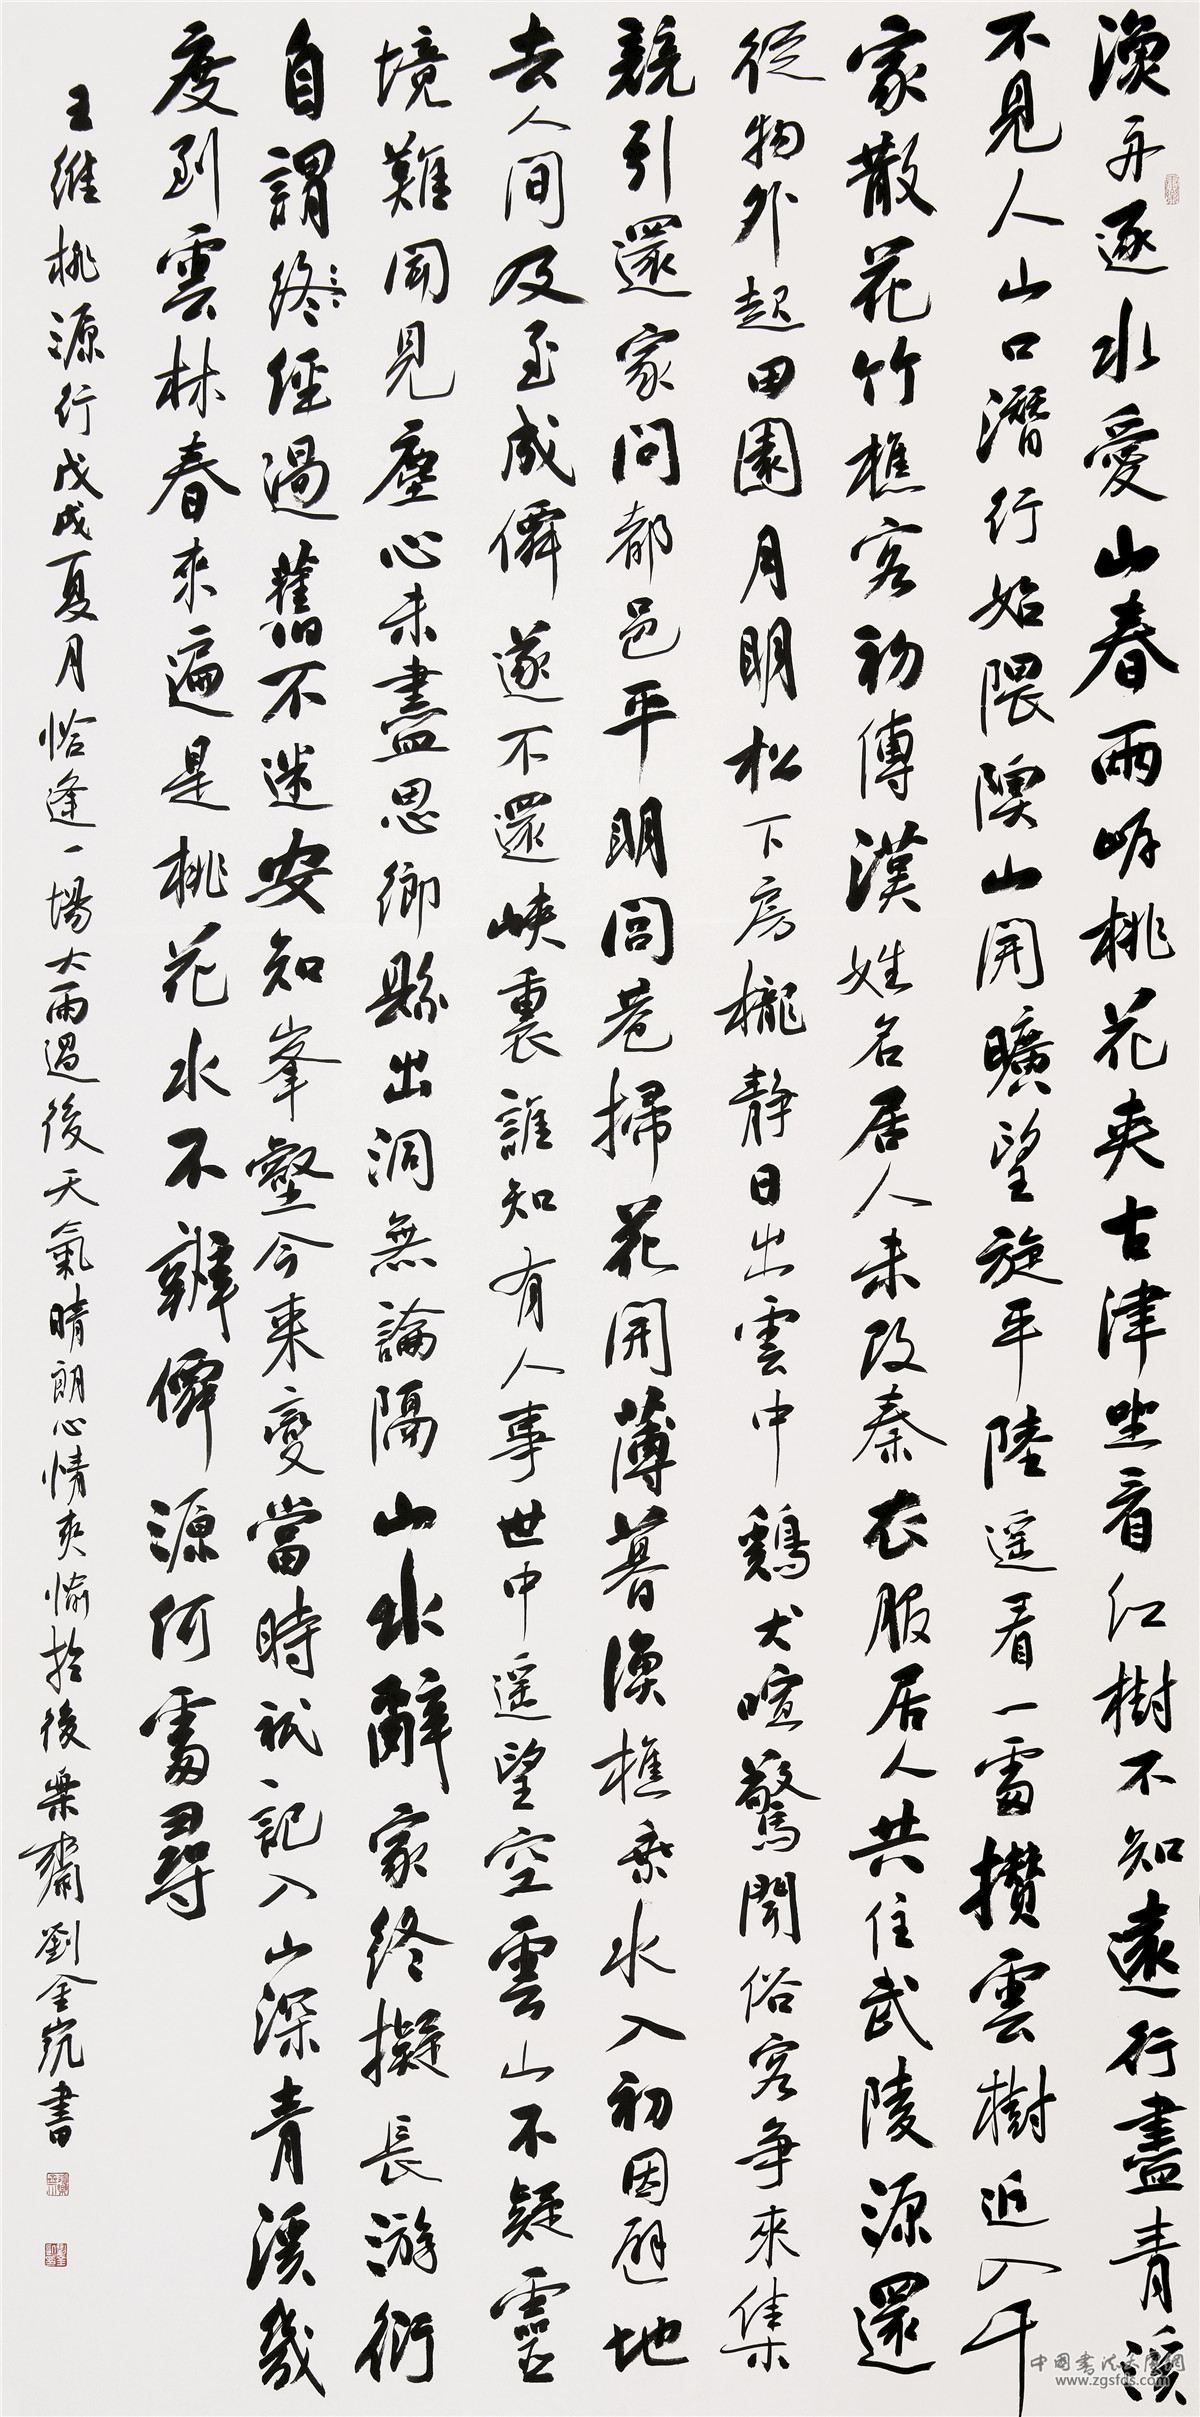 漁舟逐水愛山春兩岸桃花夾古津坐看紅樹不知遠行盡青溪
不見人山口潛行始隈隩山開曠望旋平陸遙看一處攢雲樹近入千
家散花竹樵客初傳漢姓名居人未改秦衣服居人共住武陵源還
從物外起田園月明松下房櫳靜日出雲中鷄犬喧驚聞俗客爭來集
競引還家問都邑平明閭巷掃花開薄暮漁樵乘水入初因避地
去人間及至成僊遂不還峽裏誰知有人事世中遙望空雲山不疑靈
境難聞見塵心未盡思鄉縣出洞無論隔山水辭家終擬長游衍
自謂終經過舊不迷安知峯壑今来變當時祇記入山深青溪幾
度到雲林春來遍是桃花水不辨僊源何處尋
王維桃源行戊戌夏月恰逢一場大雨過後天氣晴朗心情爽愉於後樂齋劉金凱書
中国书法大展网
www.zgsfds.com